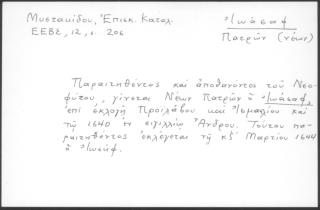 Μυστακίδου, Ἐπισκ. Καταλ.
ΕΕΒΣ, 12, σ. 206
Ἰωάσαφ
Πατρῶν (νέων)
Παραιτηθέντος καὶ ἀποθανόντος τοῦ Νεο-
φύτου, γίνεται Νέων Πατρῶν ὁ Ἰωάσαφ,
ἐπὶ ἐκλογῇ Προιλάβου καὶ Ἰσμαηλίου καὶ
τῷ 1640 ἐν Ἄνδρου. Τούτου πα-
ραιτηθέντος ἐκλέγεται τῇ κξ΄ Μαρτίου 1644
ὁ Ἰωσήφ.